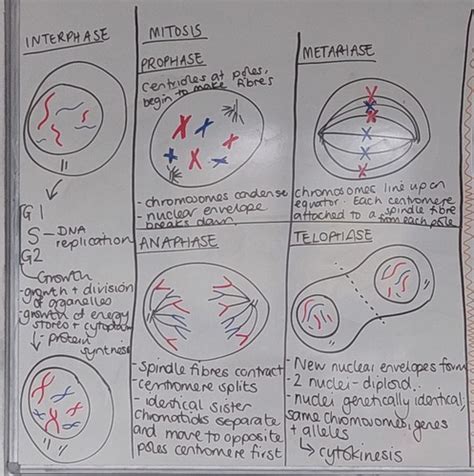 INTERPHASE
G1
S - DNA
replication
G2
Growth
- growth + division
of organelles
- growth of energy
stores + cytoplasm
- protein
synthesis
MITOSIS
PROPHASE
centrioles at poles,
begin to make fibres
- chromosomes condense
- nuclear envelope
breaks down
METAPHASE
chromosomes line up on
equator. Each centromere
attached to a spindle fibre
from each pole
ANAPHASE
- Spindle fibres contract
- centromere splits
- identical sister
chromatids separate
and move to opposite
poles centromere first
TELOPHASE
- New nuclear envelopes form
- 2 nuclei - diploid.
- nuclei genetically identical,
same chromosomes, genes
+ alleles
↳ cytokinesis